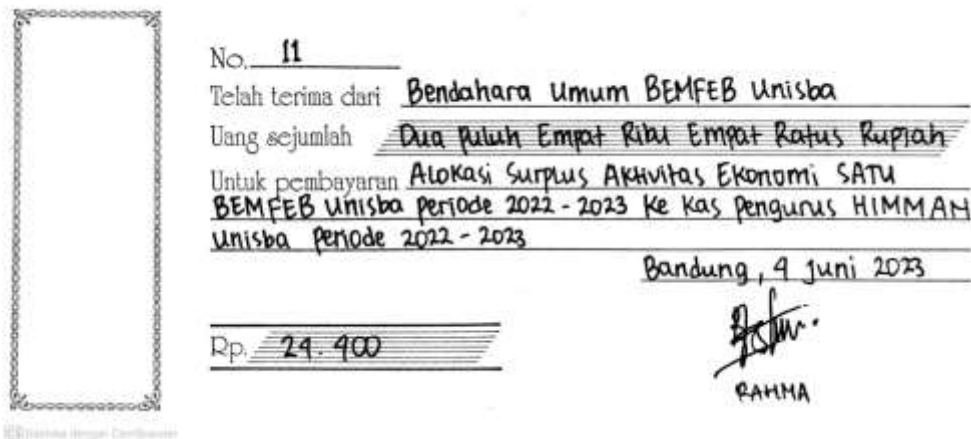 No. 11
Telah terima dari Bendahara Umum BEMFEB Unisba
Uang sejumlah Dua Puluh Empat Ribu Empat Ratus Rupiah
Untuk pembayaran Alokasi Surplus Aktivitas Ekonomi SATU
BEMFEB Unisba Periode 2022 - 2023 Ke Kas Pengurus HIMMAN
Unisba Periode 2022 - 2023
Bandung, 4 Juni 2023
Rp. 24.400
RAHMA
Dipindai dengan CamScanner